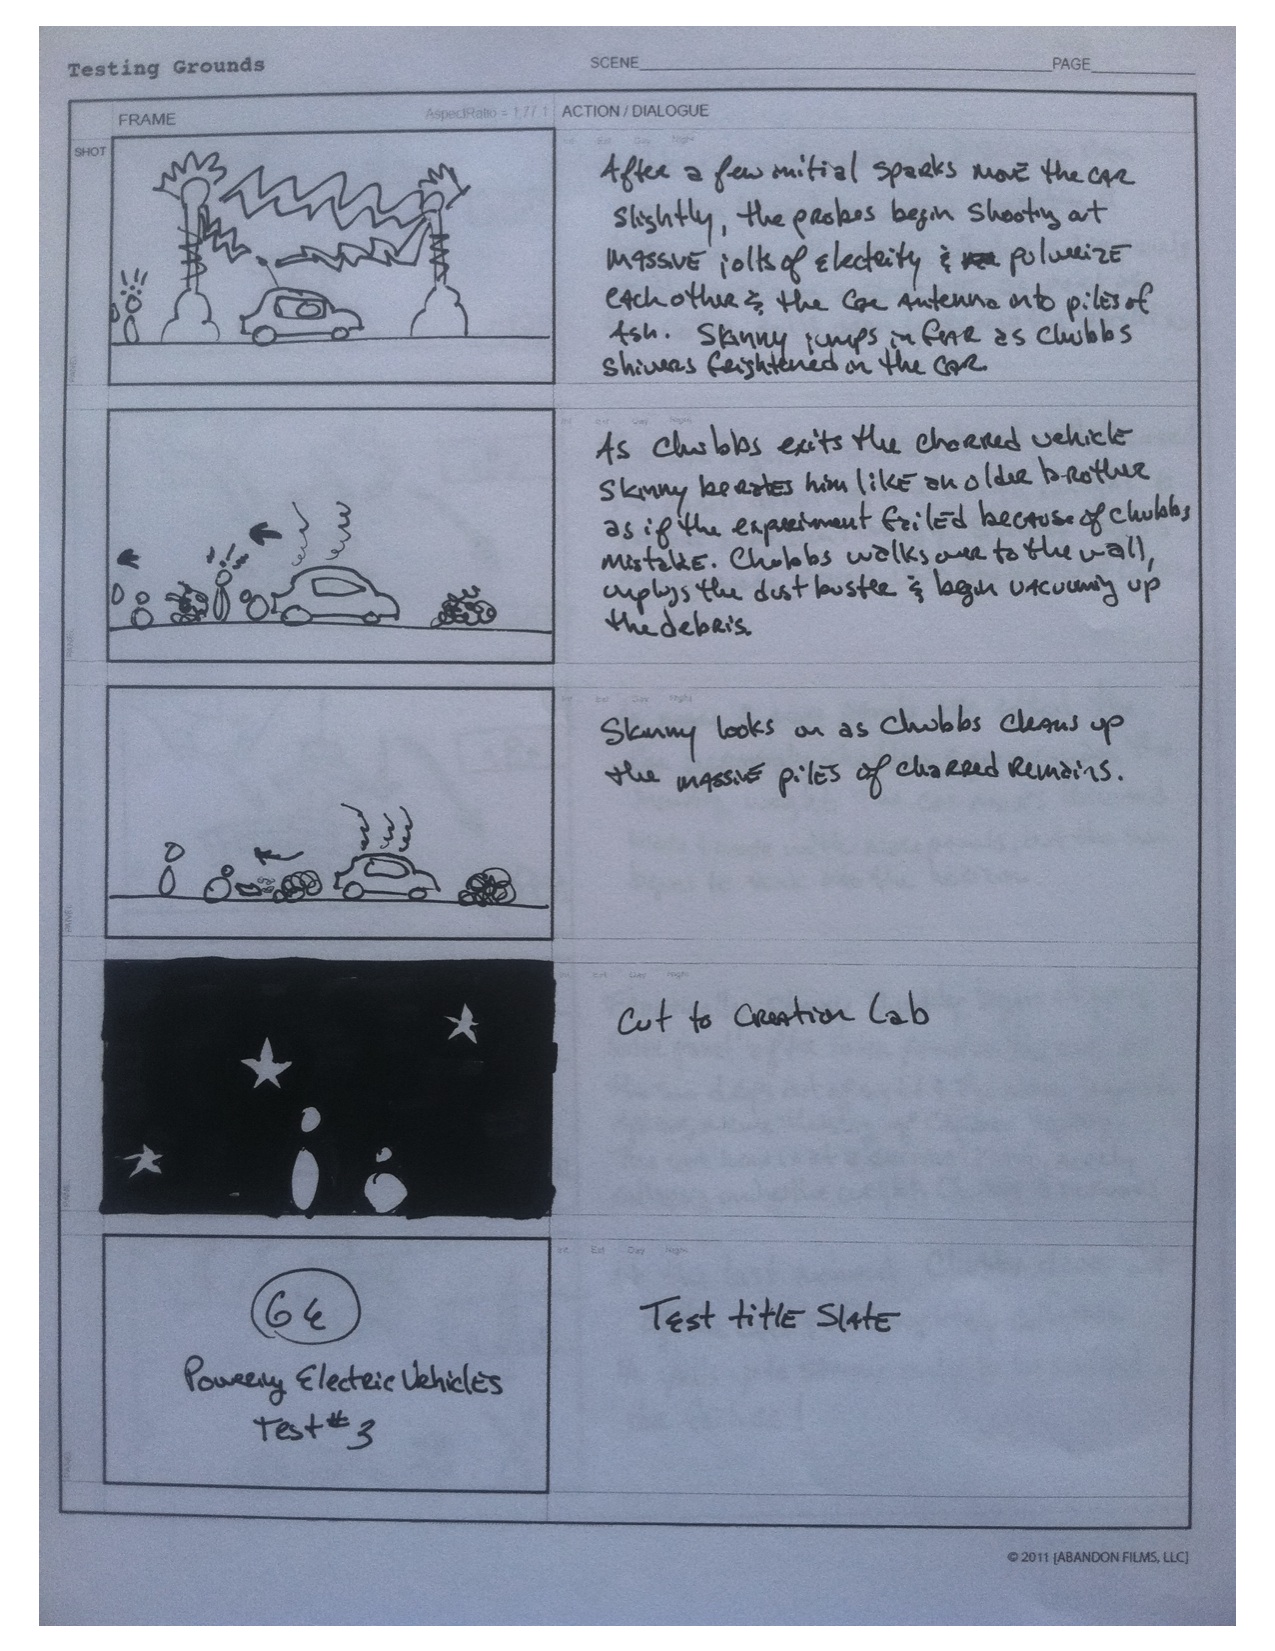 Testing Grounds
SCENE
PAGE
FRAME
AspectRatio = 1.77:1
ACTION / DIALOGUE
SHOT
After a few initial sparks move the car
slightly, the probes begin shooting out
massive jolts of electricity &
each other & the car antenna into piles of
ash. Skinny jumps in fear as Chubbs
shivers frightened in the car.
PANEL
Int Ext Day Night
As Chubbs exits the charred vehicle
Skinny berates him like an older brother
as if the experiment failed because of Chubbs
mistake. Chubbs walks over to the wall,
unplugs the dust buster & begin vacuuming up
the debris.
PANEL
Int Ext Day Night
Skinny looks on as Chubbs cleans up
the massive piles of charred remains.
PANEL
Int Ext Day Night
Cut to Creation Lab
PANEL
Int Ext Day Night
GE
Powering Electric Vehicles
Test #3
Test title Slate
PANEL
© 2011 [ABANDON FILMS, LLC]